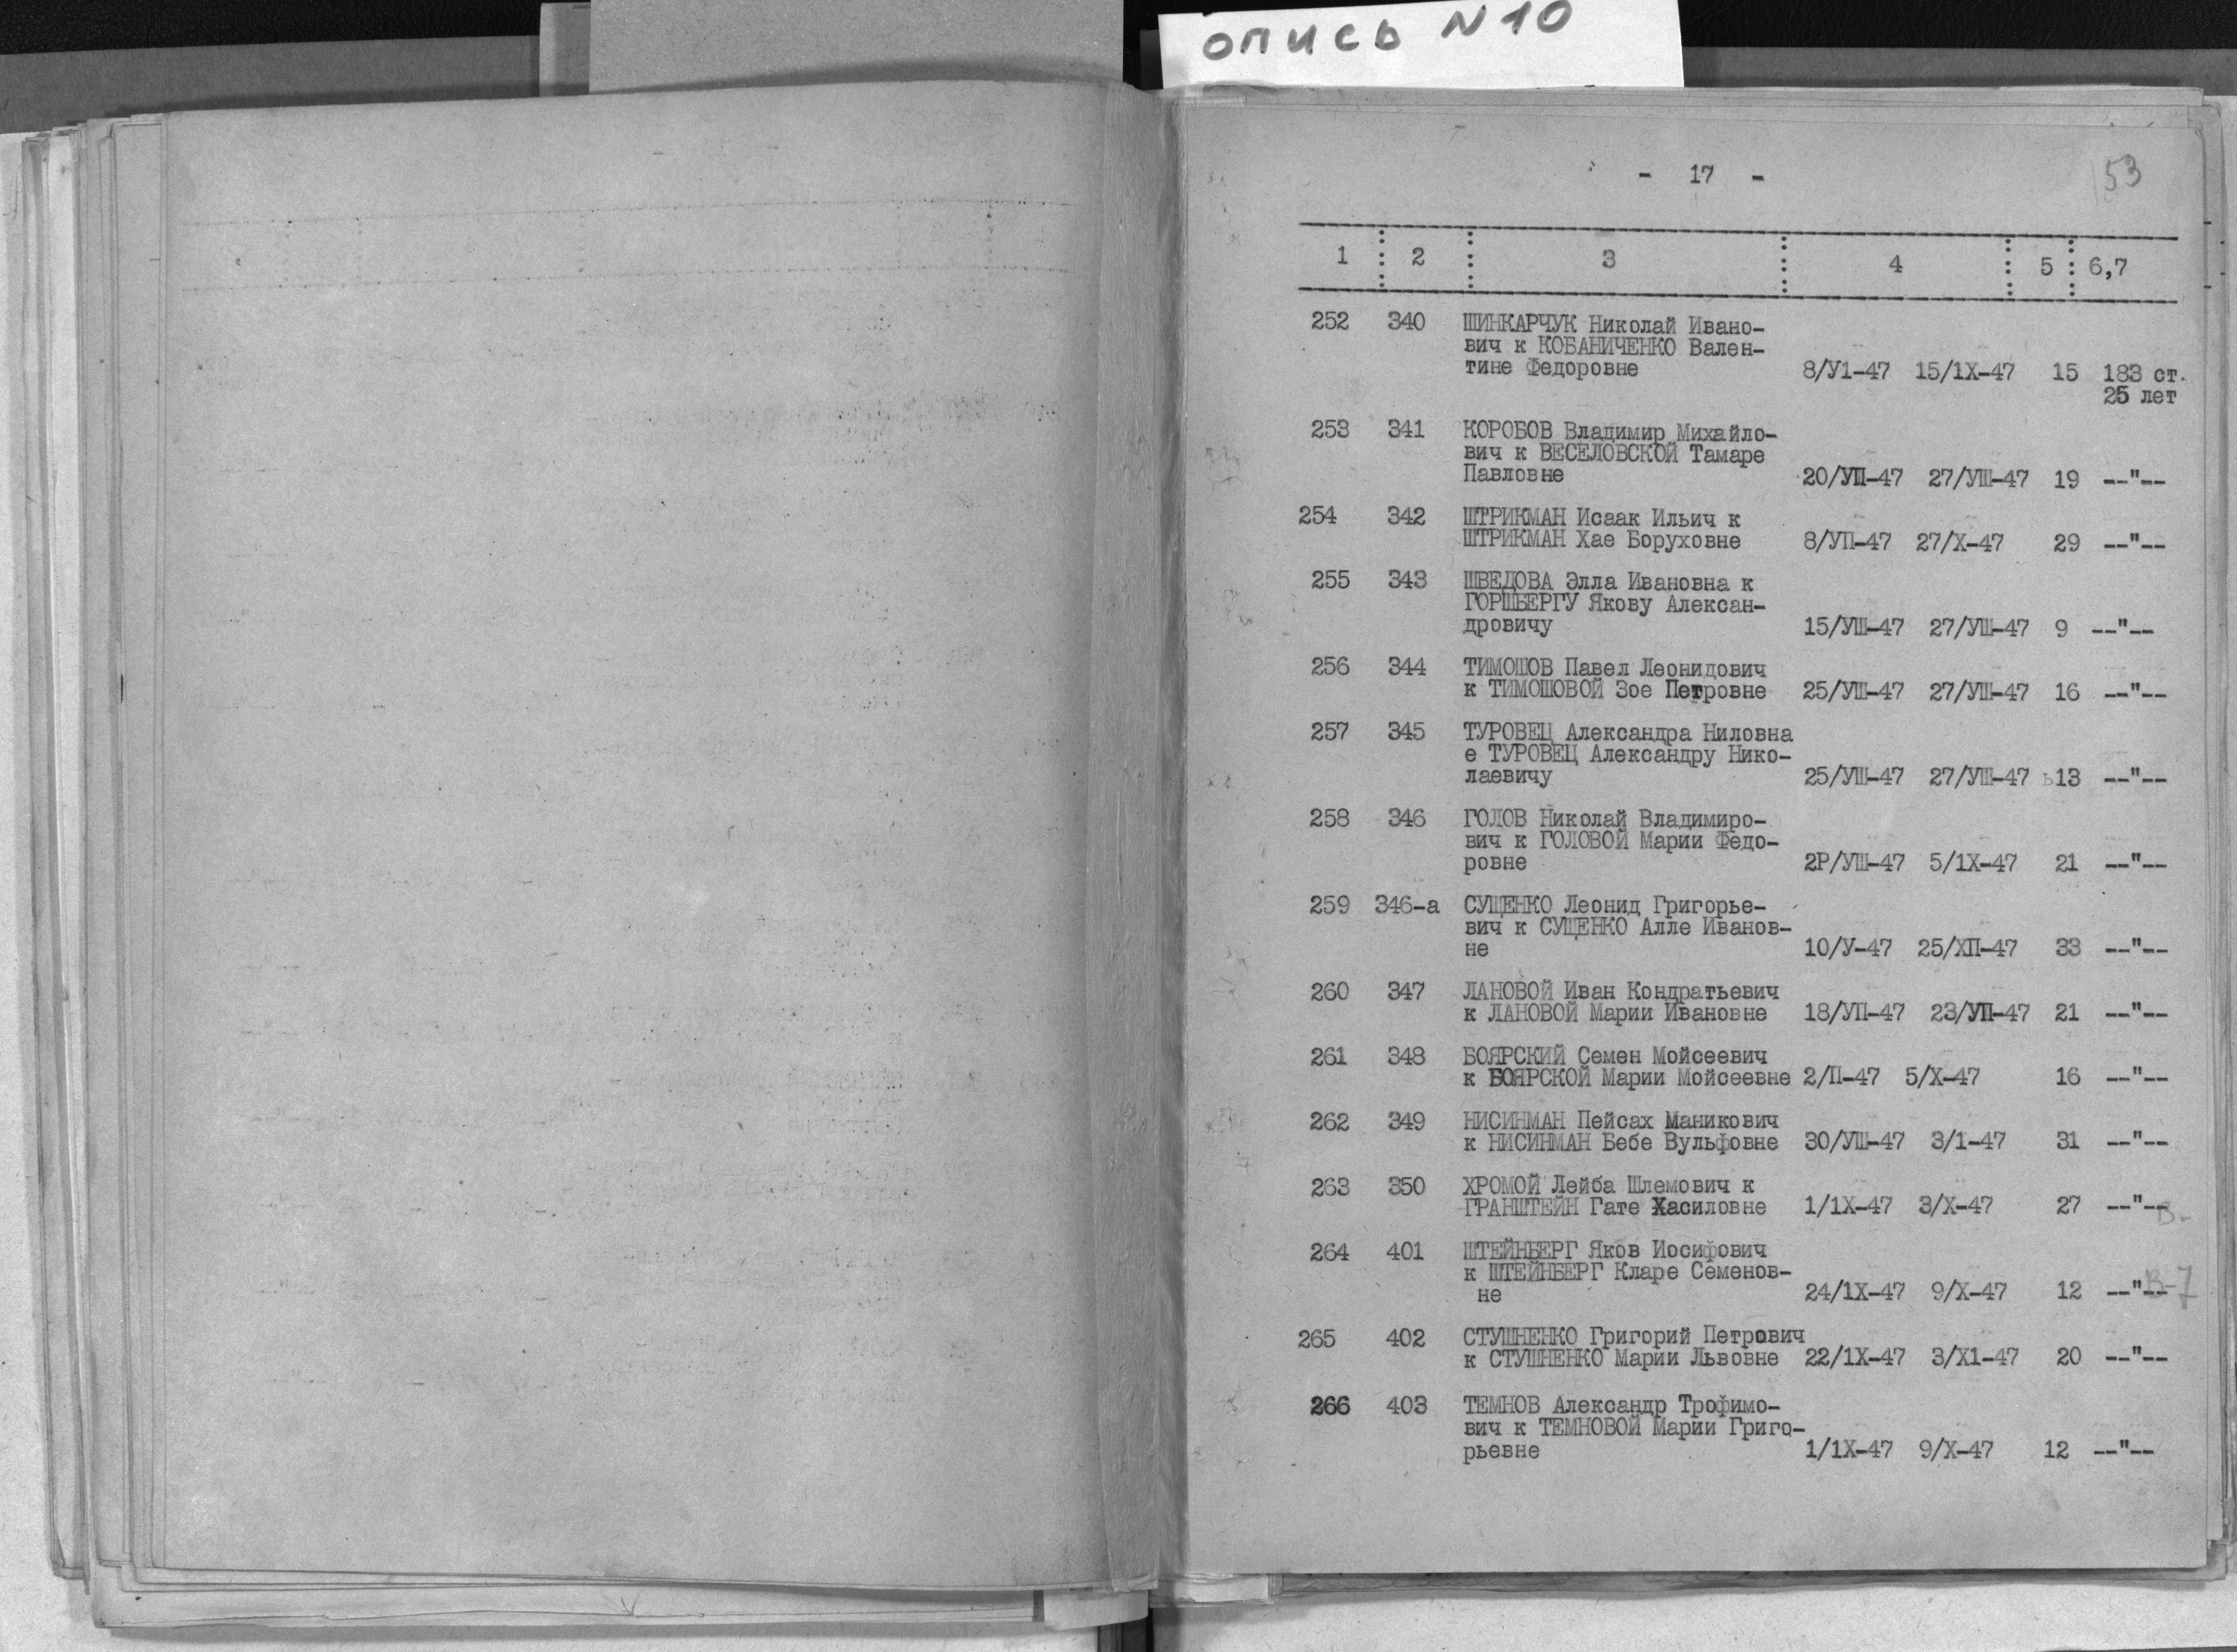 опись N 10
- 17 -
53
1 2 3 4 5 6,7
252 340 ШИНКАРЧУК Николай Ивано-
вич к КОБАНИЧЕНКО Вален-
тине Федоровне 8/У1-47 15/1Х-47 15 183 ст.
25 лет
253 341 КОРОБОВ Владимир Михайло-
вич к ВЕСЕЛОВСКОЙ Тамаре
Павловне 20/УП-47 27/УШ-47 19 --"--
254 342 ШТРИКМАН Исаак Ильич к
ШТРИКМАН Хае Боруховне 8/УП-47 27/Х-47 29 --"--
255 343 ШВЕДОВА Элла Ивановна к
ГОРШБЕРГУ Якову Алексан-
дровичу 15/УШ-47 27/УШ-47 9 --"--
256 344 ТИМОШОВ Павел Леонидович
к ТИМОШОВОЙ Зое Петровне 25/УШ-47 27/УШ-47 16 --"--
257 345 ТУРОВЕЦ Александра Ниловна
е ТУРОВЕЦ Александру Нико-
лаевичу 25/УШ-47 27/УШ-47 13 --"--
258 346 ГОЛОВ Николай Владимиро-
вич к ГОЛОВОЙ Марии Федо-
ровне 2Р/УШ-47 5/1Х-47 21 --"--
259 346-а СУЩЕНКО Леонид Григорье-
вич к СУЩЕНКО Алле Иванов-
не 10/У-47 25/ХП-47 33 --"--
260 347 ЛАНОВОЙ Иван Кондратьевич
к ЛАНОВОЙ Марии Ивановне 18/УП-47 23/УП-47 21 --"--
261 348 БОЯРСКИЙ Семен Мойсеевич
к БОЯРСКОЙ Марии Мойсеевне 2/П-47 5/Х-47 16 --"--
262 349 НИСИНМАН Пейсах Маникович
к НИСИНМАН Бебе Вульфовне 30/УШ-47 3/1-47 31 --"--
263 350 ХРОМОЙ Лейба Шлемович к
ГРАНШТЕЙН Гате Хасиловне 1/1Х-47 3/Х-47 27 --"--
В-
264 401 ШТЕЙНБЕРГ Яков Иосифович
к ШТЕЙНБЕРГ Кларе Семенов-
не 24/1Х-47 9/Х-47 12 --"-- В-7
265 402 СТУШНЕНКО Григорий Петрович
к СТУШНЕНКО Марии Львовне 22/1Х-47 3/Х1-47 20 --"--
266 403 ТЕМНОВ Александр Трофимо-
вич к ТЕМНОВОЙ Марии Григо-
рьевне 1/1Х-47 9/Х-47 12 --"--